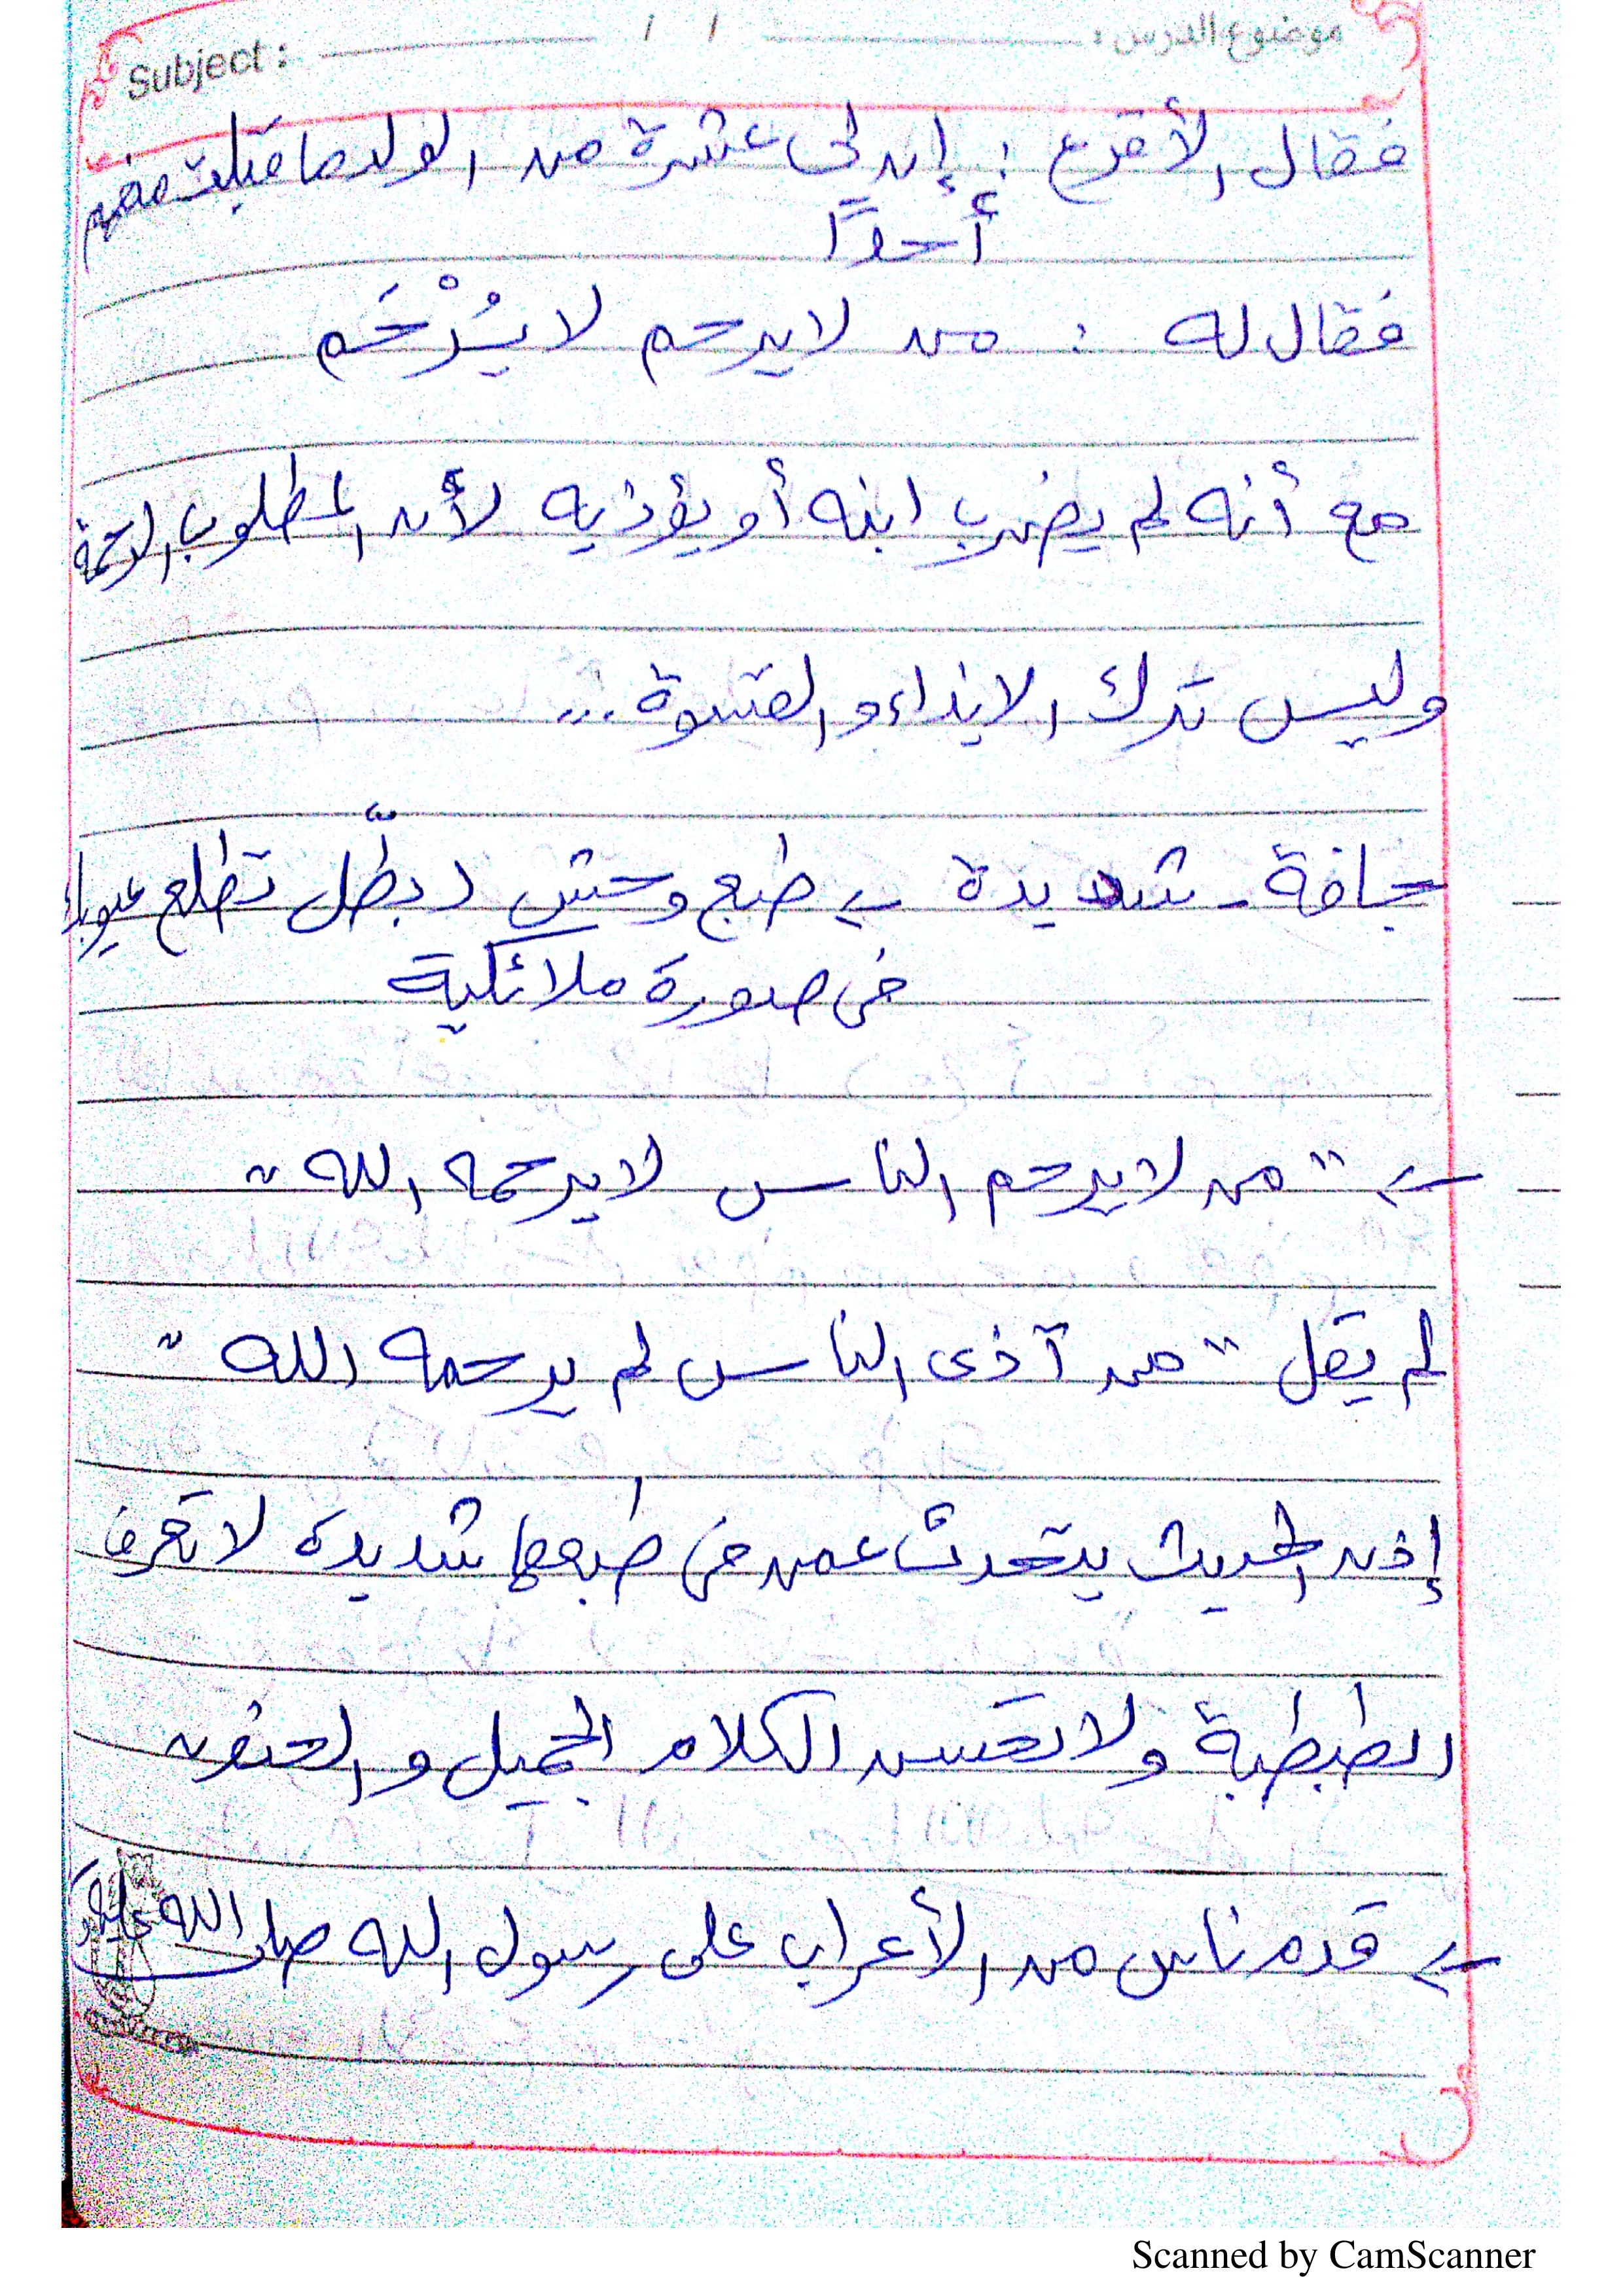 موضوع الدرس : / / Subject :
فقال الأقرع : إن لى عشرة من الولد ما قبلت منهم
أحدًا
فقال له : من لا يرحم لا يُرْحَم
مع أنه لم يضرب ابنه أو يؤذيه لأن المطلوب الرحمة
وليس ترك الايذاء و القسوة ...
جافة - شديدة ← طبع وحش ( بطّل تطلع عيوبك
فى صورة ملائكية
← " من لا يرحم الناس لا يرحمه الله "
لم يقل " من آذى الناس لم يرحمه الله "
إذن الحديث يتحدث عمن فى طبعها شديدة لا تعرف
الطبطبة ولا تحسن الكلام الجميل و الحنون
← قدم ناس من الأعراب على رسول الله صلى الله عليه
Scanned by CamScanner